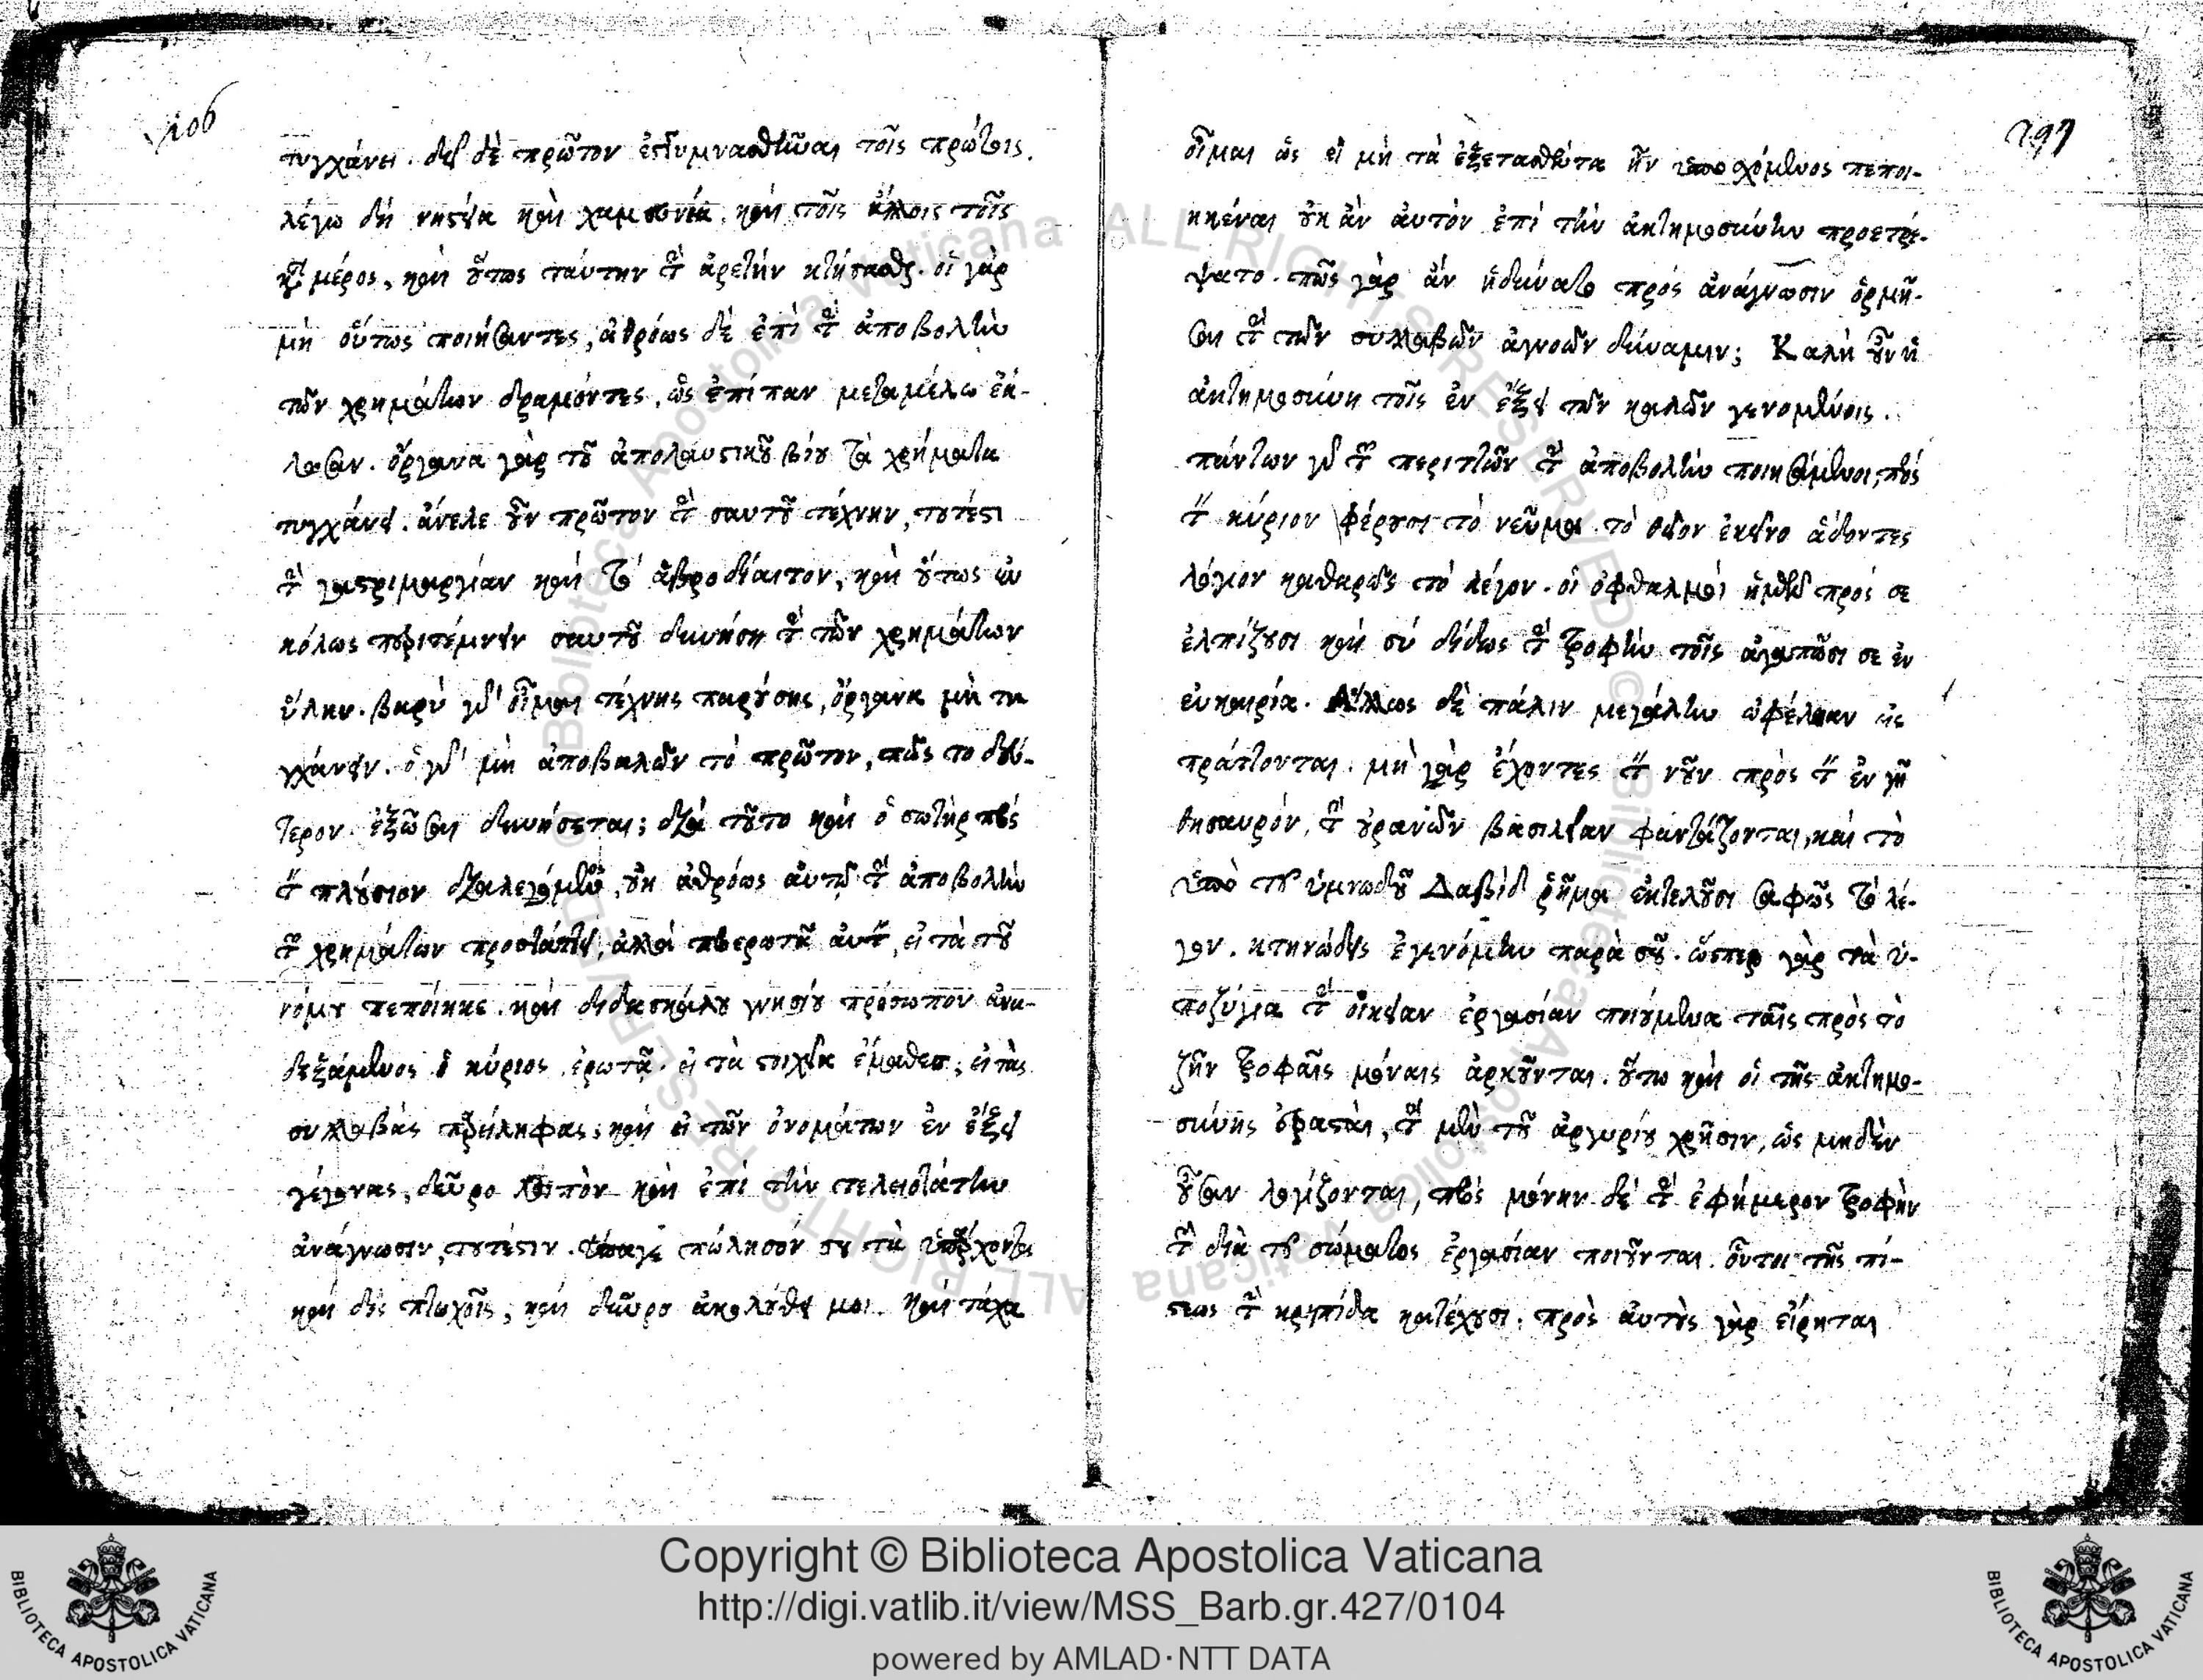 106
τυγχάνει. δεῖ δὲ πρῶτον ἐγγυμνασθῆναι τοῖς πρώτοις.
λέγω δὴ νηστεία καὶ χαμευνία, καὶ τοῖς ἄλλοις τοῖς
κατὰ μέρος, καὶ οὕτως ταύτην τὴν ἀρετὴν κτήσασθαι. οἱ γὰρ
μὴ οὕτως ποιήσαντες, ἀθρόως δὲ ἐπὶ τὴν ἀποβολὴν
τῶν χρημάτων δραμόντες, ὡς ἐπίπαν μεταμέλω ἑά-
λωσαν. ὄργανα γὰρ τοῦ ἀπολαυστικοῦ βίου τὰ χρήματα
τυγχάνει. ἄνελε οὖν πρῶτον τὴν σαυτοῦ τέχνην, τουτέστι
τὴν γαστριμαργίαν καὶ τὸ ἁβροδίαιτον, καὶ οὕτως εὐ
κόλως περιτέμνειν σαυτοῦ δυνήσῃ τὴν τῶν χρημάτων
ὕλην. βαρὺ γὰρ οἶμαι τέχνης παρούσης, ὄργανα μὴ τυ
γχάνειν. ὁ γὰρ μὴ ἀποβαλὼν τὸ πρῶτον, πῶς το δεύ-
τερον ἐξῶσαι δυνήσεται; διὰ τοῦτο καὶ ὁ σωτὴρ πρὸς
τὸν πλούσιον διαλεγόμενος, οὐκ ἀθρόως αὐτῷ τὴν ἀποβολὴν
τῶν χρημάτων προστάττει, ἀλλὰ πρῶτον ἐρωτᾷ αὐτόν, εἰ τὰ τοῦ
νόμου πεποίηκε. καὶ διδασκάλου γνησίου πρόσωπον ἀνα-
δεξάμενος ὁ κύριος ἐρωτᾷ. εἰ τὰ στοιχεῖα ἔμαθες; εἰ τὰς
συλλαβὰς παρείληφας; καὶ εἰ τῶν ὀνομάτων ἐν ἕξει
γέγονας, δεῦρο λοιπὸν καὶ ἐπὶ τὴν τελειοτάτην
ἀνάγνωσιν, τουτέστιν. ὕπαγε πώλησόν σου τὰ ὑπάρχοντα
καὶ δὸς πτωχοῖς, καὶ δεῦρο ἀκολούθει μοι. καὶ τάχα
197
οἶμαι ὡς εἰ μὴ τὰ ἐξετασθέντα ἦν ὑποσχόμενος πεποι-
ηκέναι οὐκ ἂν αὐτὸν ἐπὶ τὴν ἀκτημοσύνην προετρέ-
ψατο. πῶς γὰρ ἂν ἠδύνατο πρὸς ἀνάγνωσιν ὁρμῆ-
σαι τὴν τῶν συλλαβῶν ἀγνοῶν δύναμιν; Καλὴ οὖν ἡ
ἀκτημοσύνη τοῖς ἐν ἕξει τῶν καλῶν γενομένοις.
πάντων γὰρ τῶν περιττῶν τὴν ἀποβολὴν ποιησάμενοι, πρὸς
τὸν κύριον φέρουσι τὸ νεῦμα. τὸ θεῖον ἐκεῖνο ἄδοντες
λόγιον καθαρῶς τὸ λέγον. οἱ ὀφθαλμοὶ ἡμῶν πρός σε
ἐλπίζουσι καὶ σὺ δίδως τὴν τροφὴν τοῖς ἀγαπῶσι σε ἐν
εὐκαιρία. Ἄλλως δὲ πάλιν μεγάλην ὠφέλειαν εἰς
πράττονται. μὴ γὰρ ἔχοντες τὸν νοῦν πρὸς τὸν ἐν γῇ
θησαυρόν, τὴν οὐρανῶν βασιλείαν φαντάζονται, καὶ τὸ
ὑπὸ τοῦ ὑμνωδοῦ Δαβὶδ ῥῆμα ἐκτελοῦσι σαφῶς τὸ λέ-
γον. κτηνώδης ἐγενόμην παρὰ σοῦ. ὥσπερ γὰρ τὰ ὑ-
ποζύγια τὴν οἰκείαν ἐργασίαν ποιούμενα ταῖς πρὸς τὸ
ζῆν τροφαῖς μόναις ἀρκοῦνται. οὕτω καὶ οἱ τῆς ἀκτημο-
σύνης ἐρασταί, τὴν μὲν τοῦ ἀργυρίου χρῆσιν, ὡς μηδὲν
οὖσαν λογίζονται, πρὸς μόνην δὲ τὴν ἐφήμερον τροφὴν
τὴν διὰ τοῦ σώματος ἐργασίαν ποιοῦνται. οὗτοι τῆς πί-
στεως τὴν κρηπίδα κατέχουσι. πρὸς αὐτοὺς γὰρ εἴρηται
Copyright © Biblioteca Apostolica Vaticana
http://digi.vatlib.it/view/MSS_Barb.gr.427/0104
powered by AMLAD·NTT DATA
BIBLIOTECA APOSTOLICA VATICANA
BIBLIOTECA APOSTOLICA VATICANA